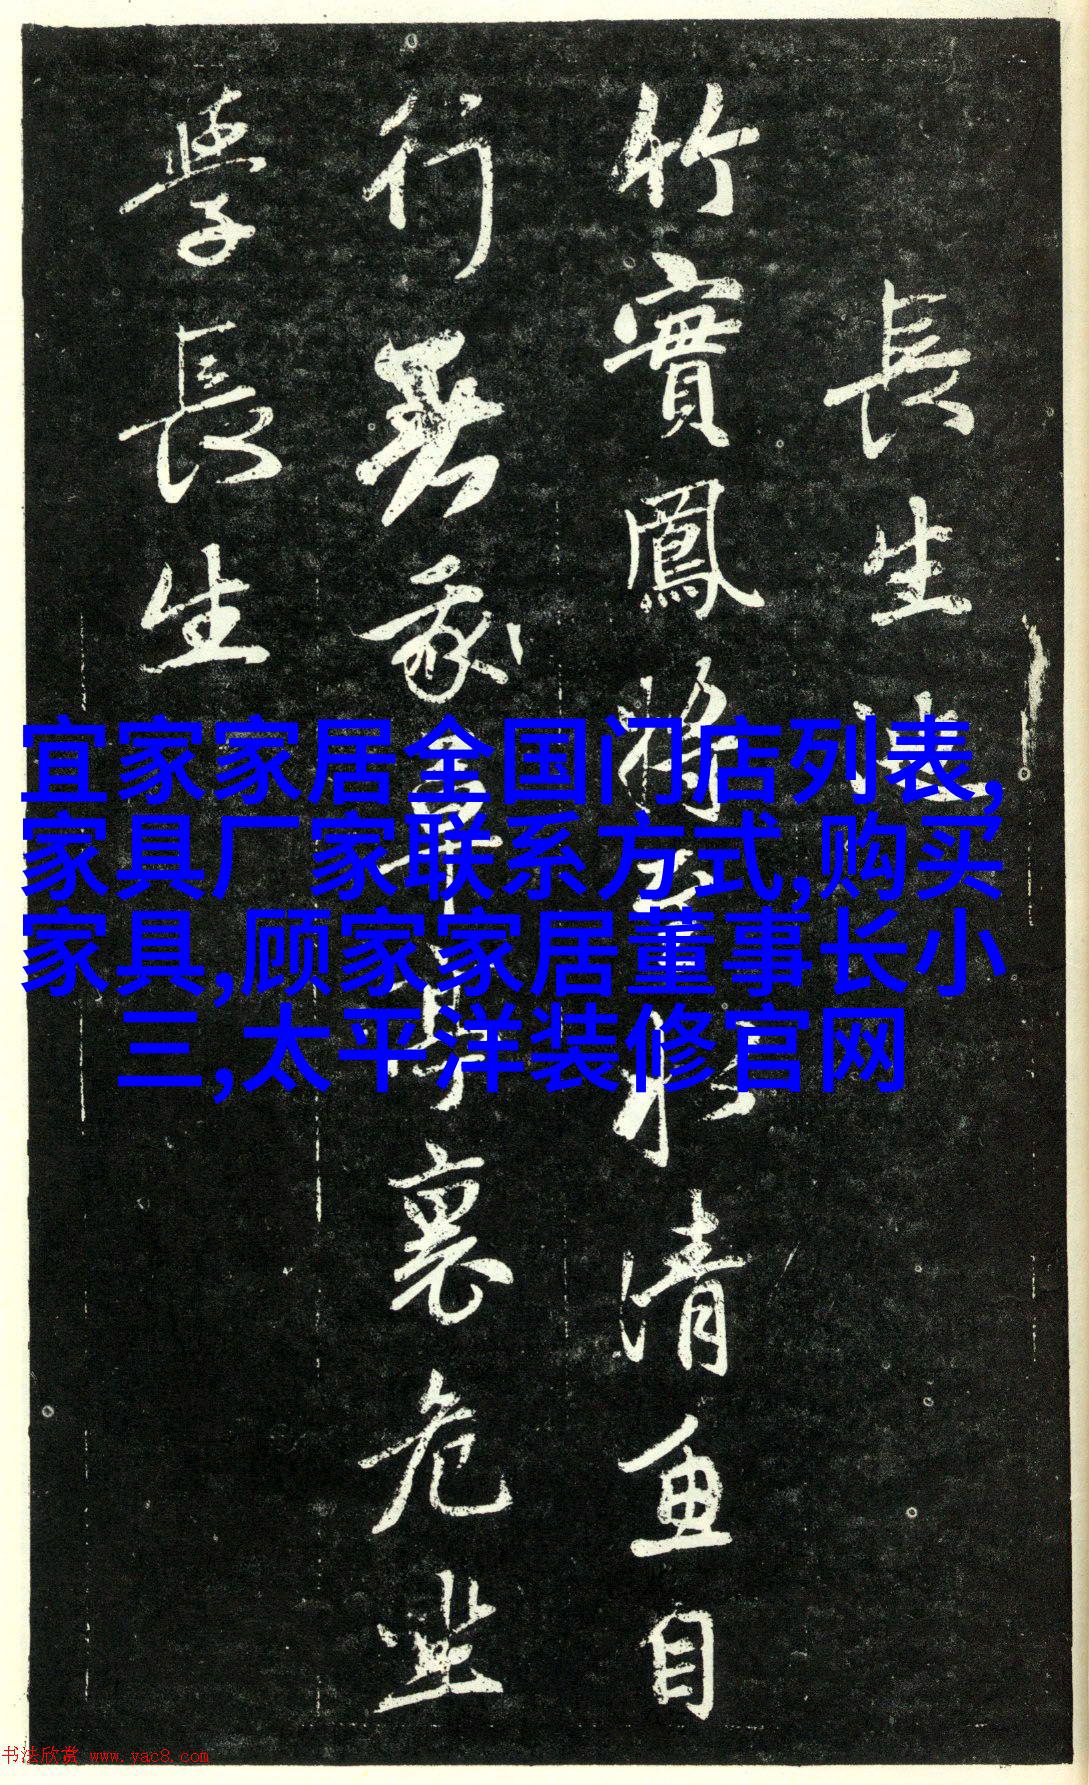 長生法
竹實鳳將清魚自
行裏危坐
學長生
宜家家居全国门店列表,
家具厂家联系方式,购买
家具,顾家家居董事长小
三,太平洋装修官网
书法欣赏 www.yac8.com